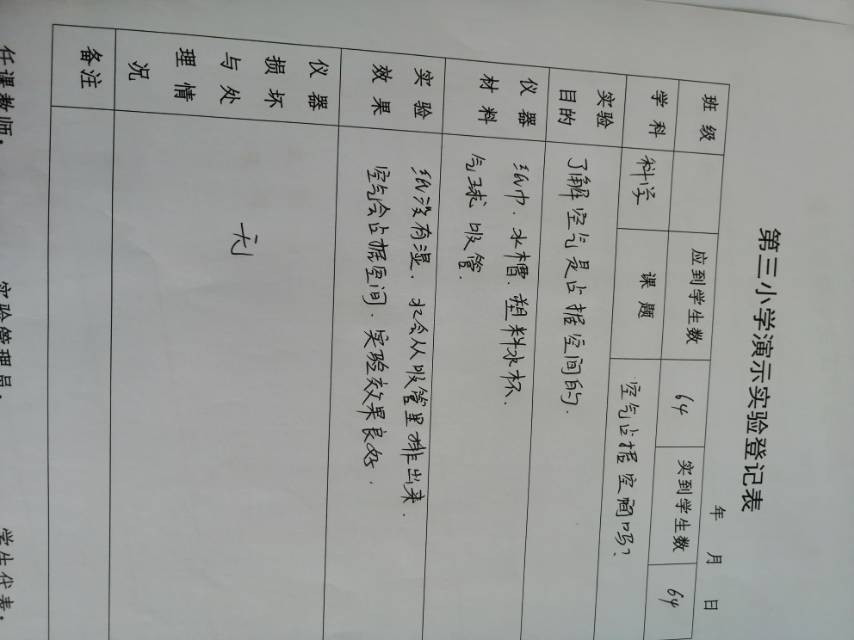 第三小学演示实验登记表
年 月 日
班级 应到学生数 64 实到学生数 64
学科 科学 课题 空气占据空间吗?
实验目的 了解空气是占据空间的.
仪器材料 纸巾、水槽、塑料水杯、
气球 吸管.
实验效果 纸没有湿、水会从吸管里排出来.
空气会占据空间.实验效果良好.
仪器损坏与处理情况 无
备注
任课教师: 实验管理员: 学生代表: